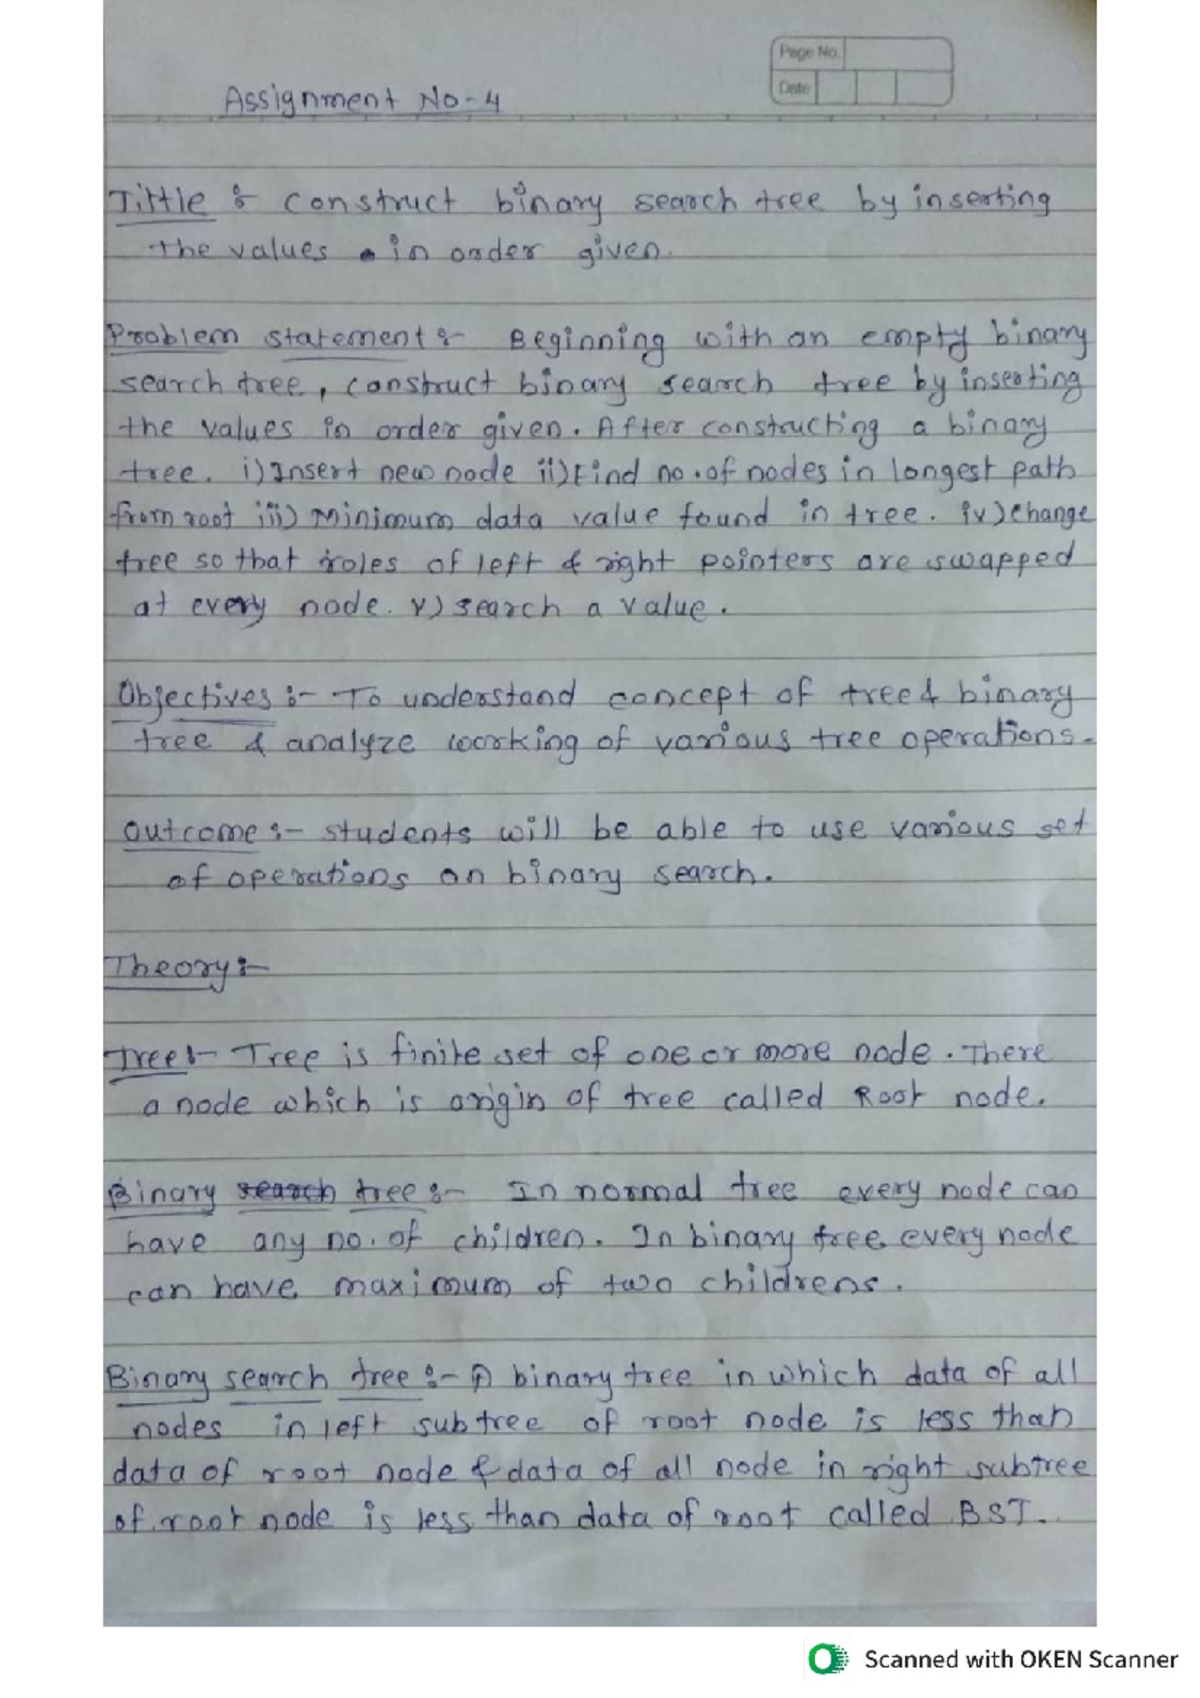 Page No.
Date
Assignment No-4
Tittle :- construct binary search tree by inserting
the values in order given.
Problem statement :- Beginning with an empty binary
search tree, construct binary search tree by inserting
the values in order given. After constructing a binary
tree. i) Insert new node ii) Find no. of nodes in longest path
from root iii) Minimum data value found in tree. iv) change
tree so that roles of left & right pointers are swapped
at every node. v) search a value.
Objectives :- To understand concept of tree & binary
tree & analyze working of various tree operations.
outcome :- students will be able to use various set
of operations on binary search.
Theory :-
Tree :- Tree is finite set of one or more node. There
a node which is origin of tree called Root node.
Binary search tree :- In normal tree every node can
have any no. of children. In binary tree every node
can have maximum of two childrens.
Binary search tree :- A binary tree in which data of all
nodes in left subtree of root node is less than
data of root node & data of all node in right subtree
of root node is less than data of root called BST.
Scanned with OKEN Scanner